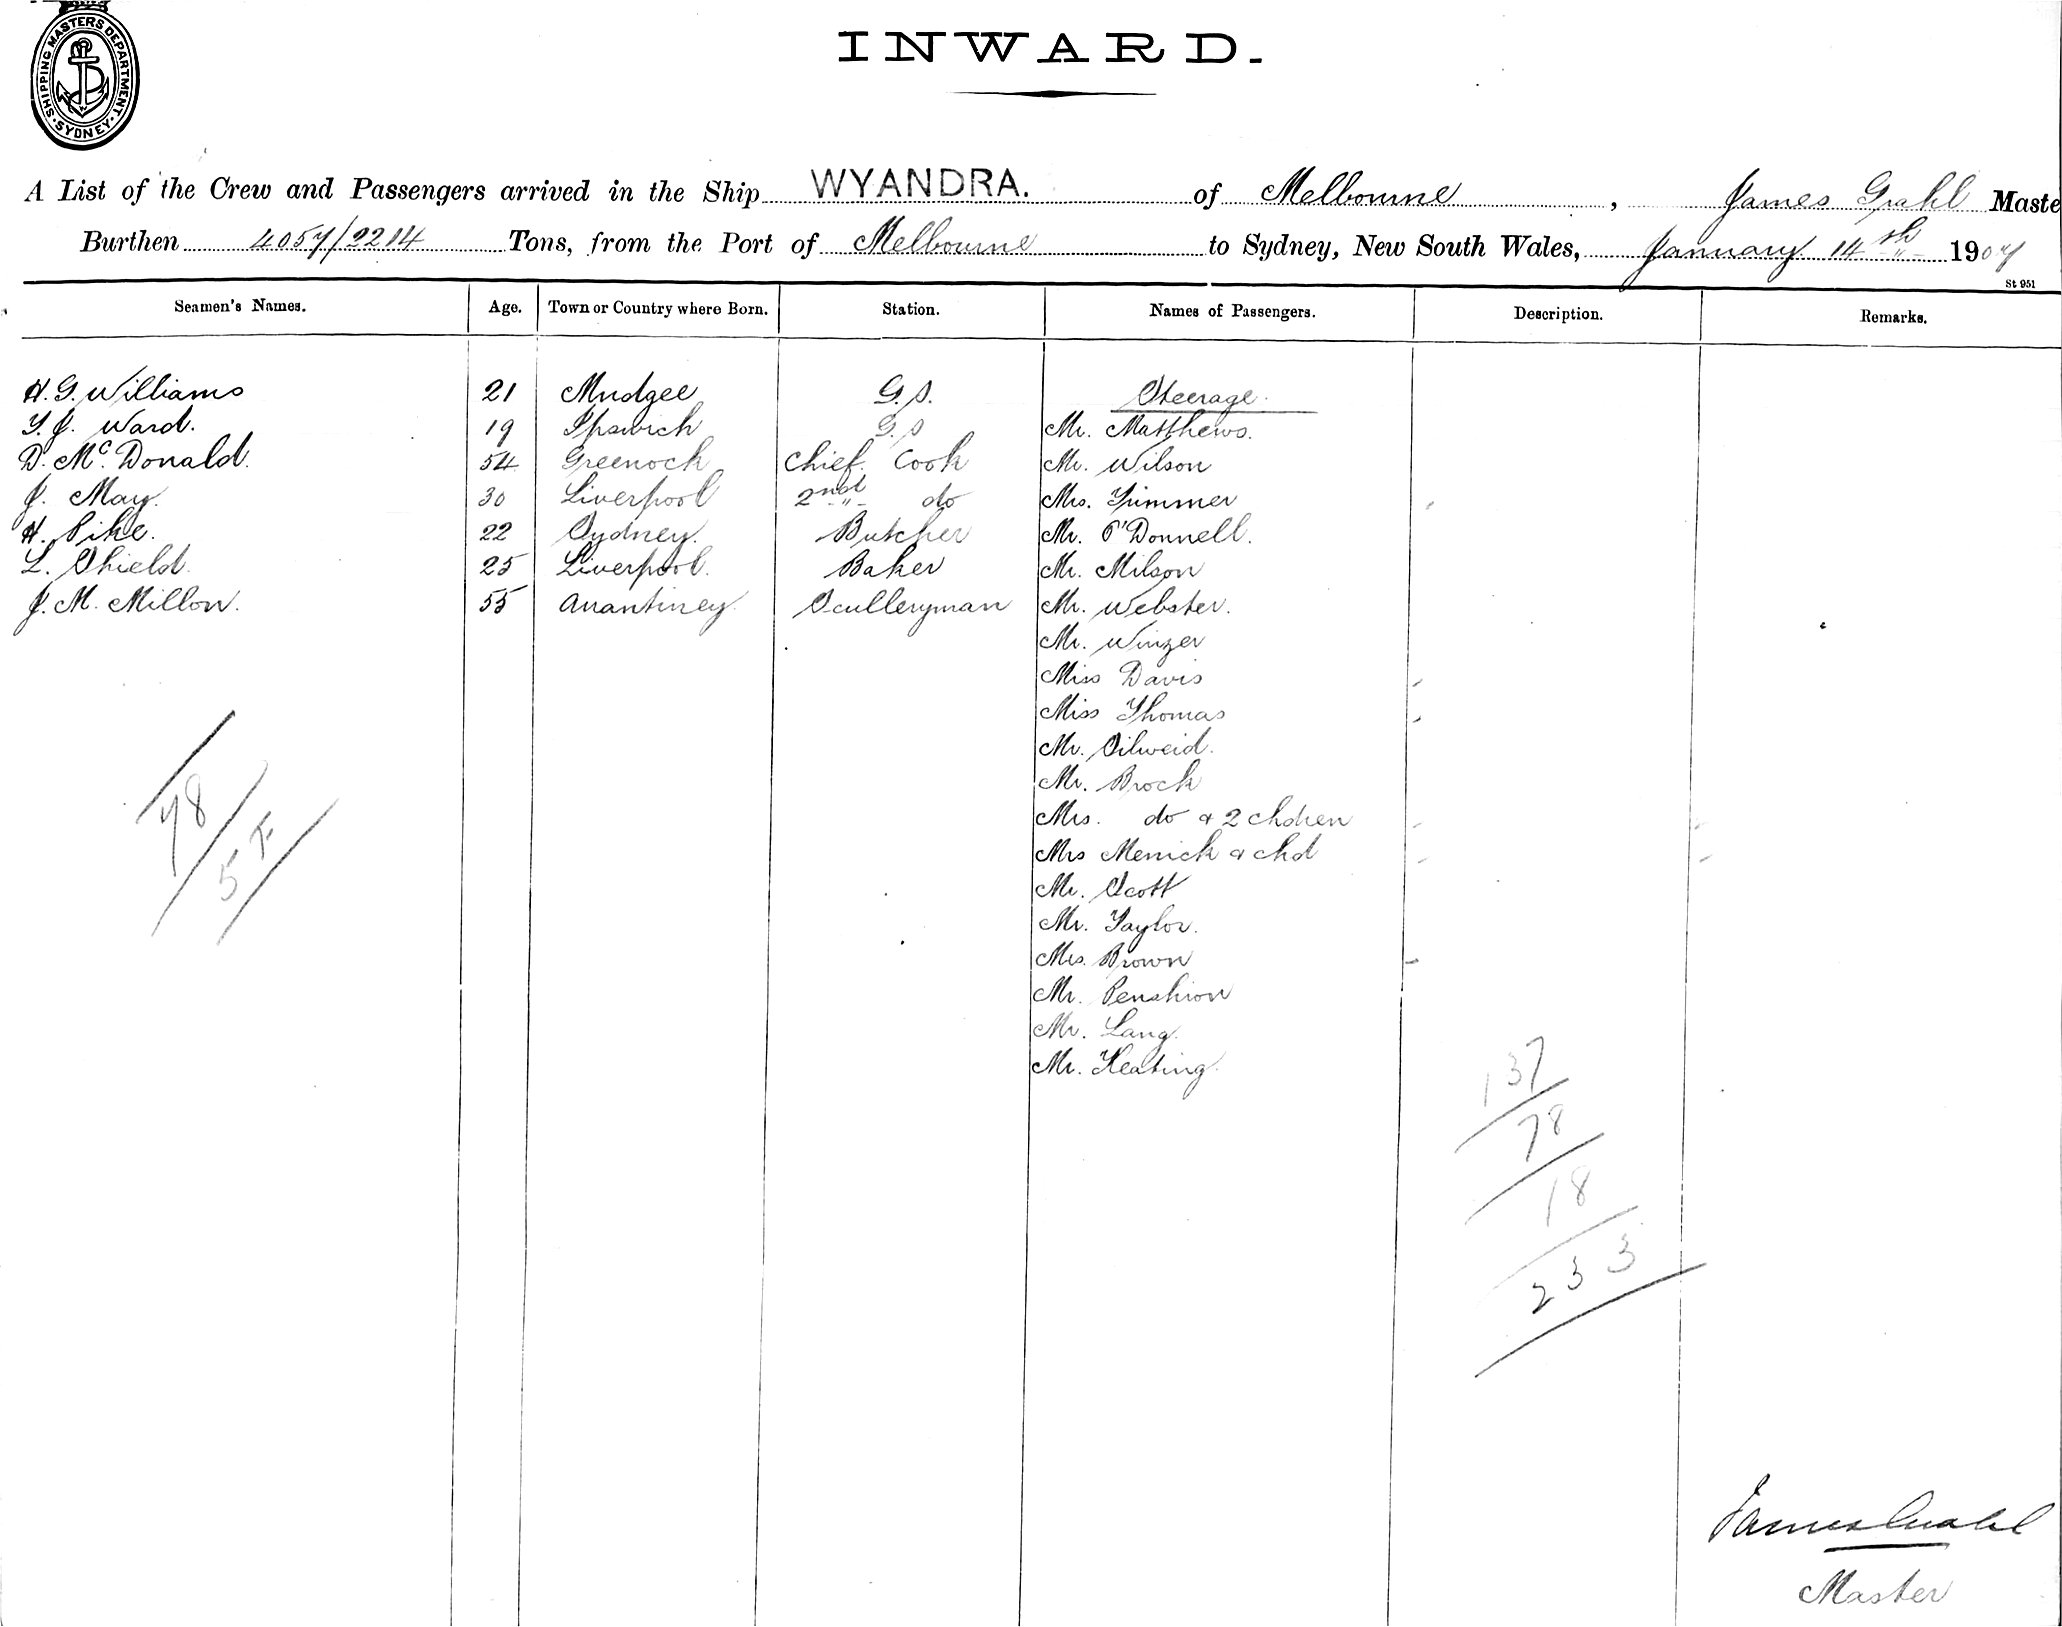 SHIPPING MASTERS DEPARTMENT · SYDNEY ·
INWARD.
A List of the Crew and Passengers arrived in the Ship WYANDRA. of Melbourne, James Grahl Maste
Burthen 4057/2214 Tons, from the Port of Melbourne to Sydney, New South Wales, January 14th 1907
St 951
Seamen's Names. Age. Town or Country where Born. Station. Names of Passengers. Description. Remarks.
H. G. Williams 21 Mudgee G.S. Steerage.
T. J. Ward. 19 Ipswich G.S Mr. Matthews.
D. McDonald. 54 Greenock Chief Cook Mr. Wilson
J. May. 30 Liverpool 2nd do Mrs. Trimmer
H. Pike. 22 Sydney. Butcher Mr. O'Donnell.
L. Shield. 25 Liverpool. Baker Mr. Milson
J. M. Millon. 55 Sculleryman Mr. Webster.
Mr. Winzer
Miss Davis
Miss Thomas
Mr. Silweid.
Mr. Brock
Mrs. do & 2 chdren
Mrs Merrick & chd
Mr. Scott
Mr. Taylor.
Mrs. Brown
Mr. Penshion
Mr. Lang.
Mr. Keating.
78
5 F
137
78
18
233
James Grahl
Master